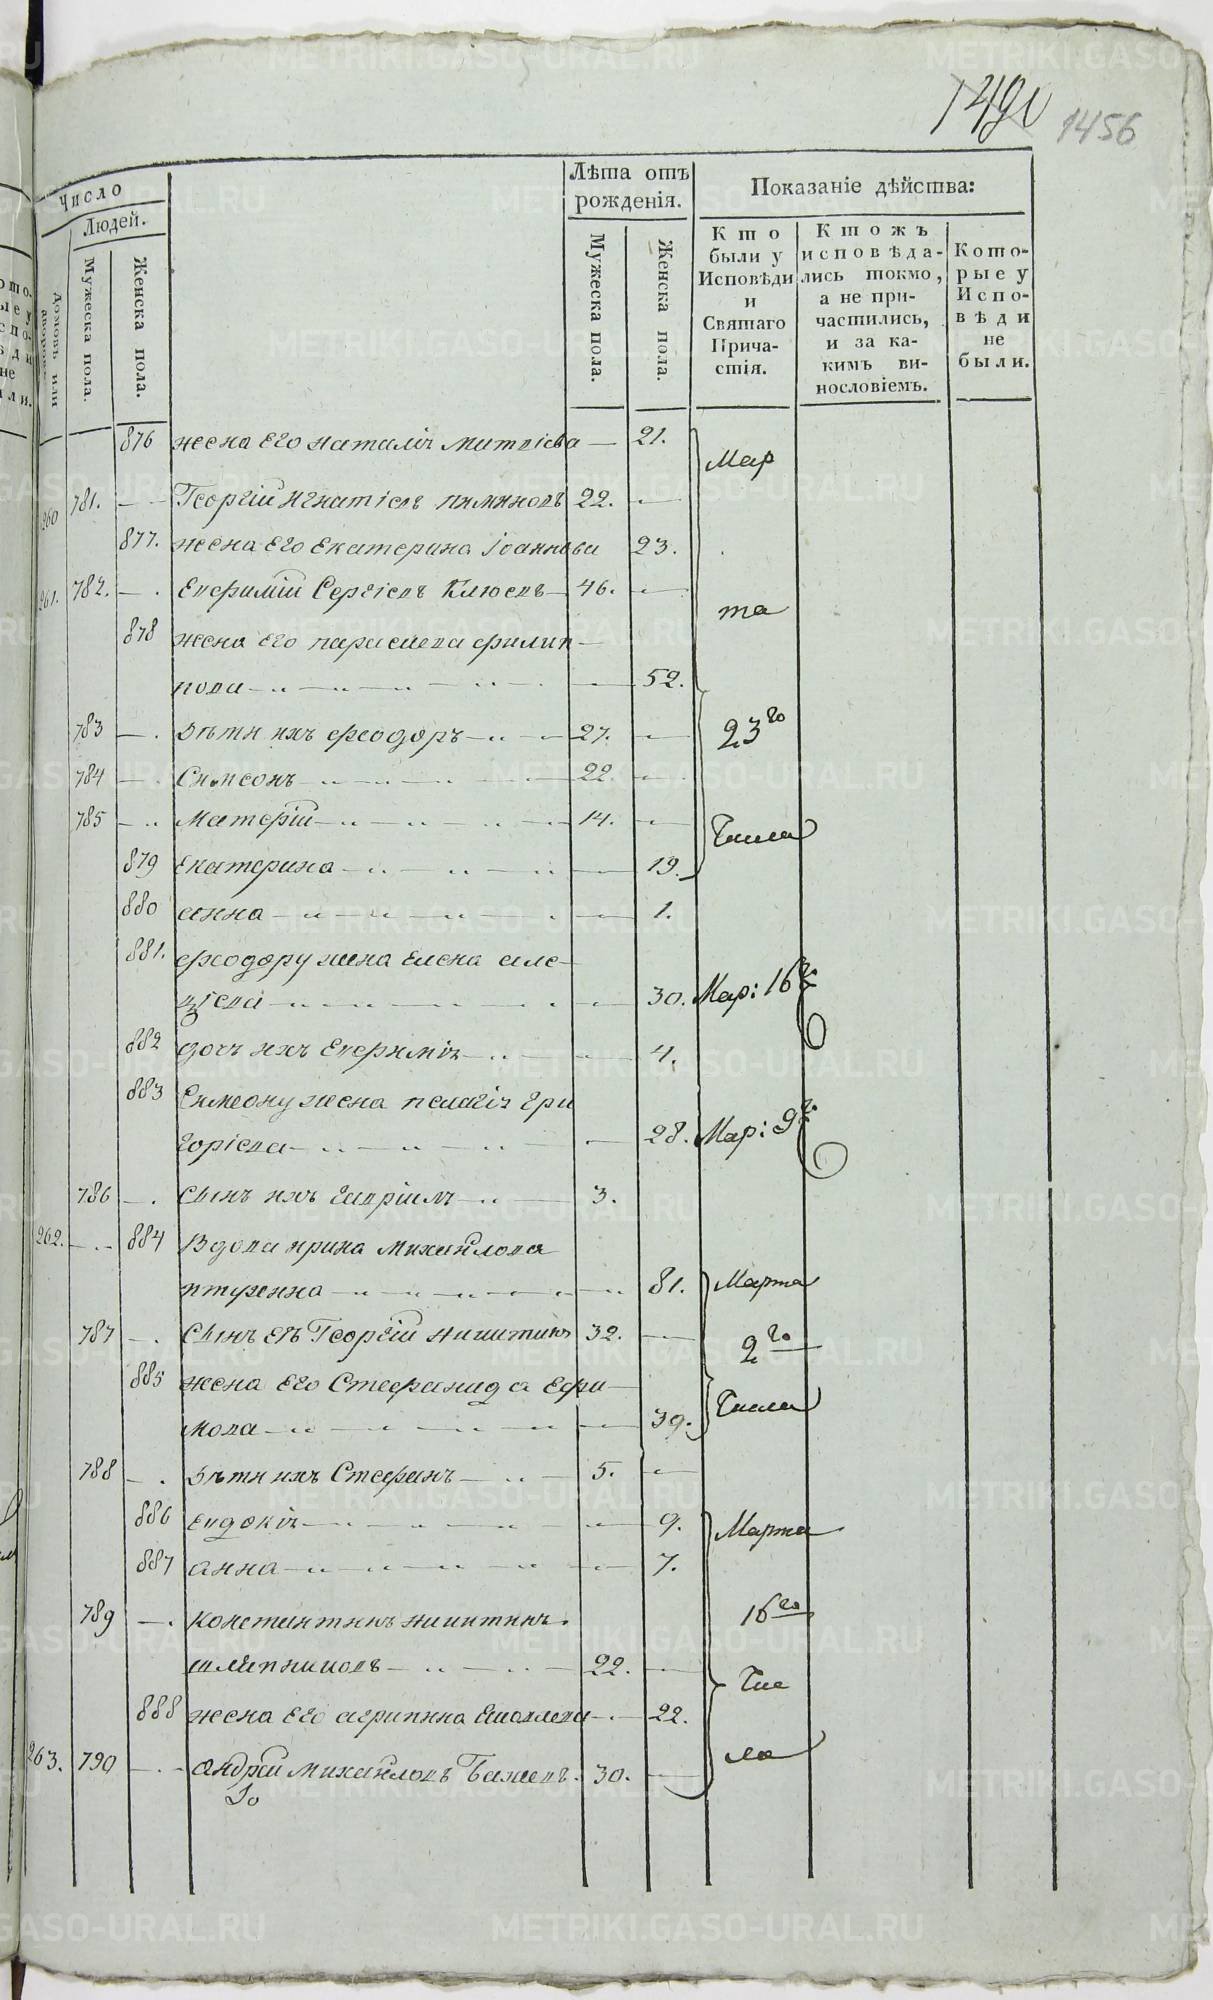 1490
1456
Число
Людей.
Домовъ или дворовъ.
Мужеска пола.
Женска пола.
Лѣта отъ рожденія.
Мужеска пола.
Женска пола.
Показаніе дѣйства:
Кто были у Исповѣди и Святаго Причастія.
Ктожъ исповѣдались токмо, а не причастились, и за какимъ винословіемъ.
Которые у Исповѣди не были.
876 жена Его наталія митріева — 21.
Мар
260 781. — Георгій Игнатіевъ пиминовъ 22. —
877. жена Его Екатерина Іоаннова 23.
261. 782. — . Ефимій Сергіевъ Клюевъ — 46. —
та
878 жена Его параскева филип—
пова — — 52.
783 — . дѣти ихъ феодоръ — 27. —
23го
784 — . Симеонъ — 22. —
785 — .. Матфій — 14. —
Числа
879 Екатерина — — 19.
880 анна — — 1.
881. феодору жена Елена але—
ѯіева — — 30. Мар: 16
882 дочь ихъ Евфимія — — 4.
883 Симеону жена пелагія гри
горіева — — 28. Мар: 9
786 — . Сынъ ихъ гавріилъ — 3.
262. — .. 884 Вдова ирина михайлова
птухина — — 81. Марта
787 — . Сынъ Ея Георгій никитинъ 32. —
2го
885 жена Его Стефанида Ефи—
мова — — 39. Числа
788 — . дѣти ихъ Стефанъ — 5. —
886 Евдокія — — 9. Марта
887 анна — — 7.
789 — . константинъ никитинъ
16го
шляпниковъ — 22. —
Чис
888 жена Его агрипина — 22.
ла
263. 790 — . андрей михайловъ Бажевъ. 30. —